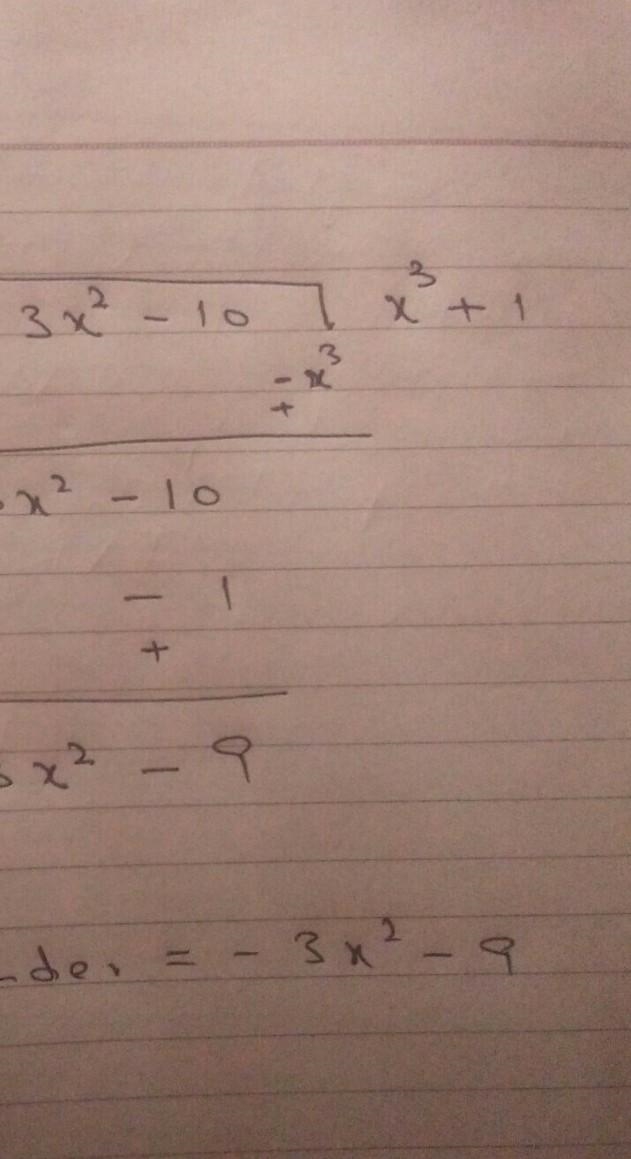 3x² - 10 x³ + 1
- x³
+
x² - 10
- 1
+
x² - 9
= - 3x² - 9